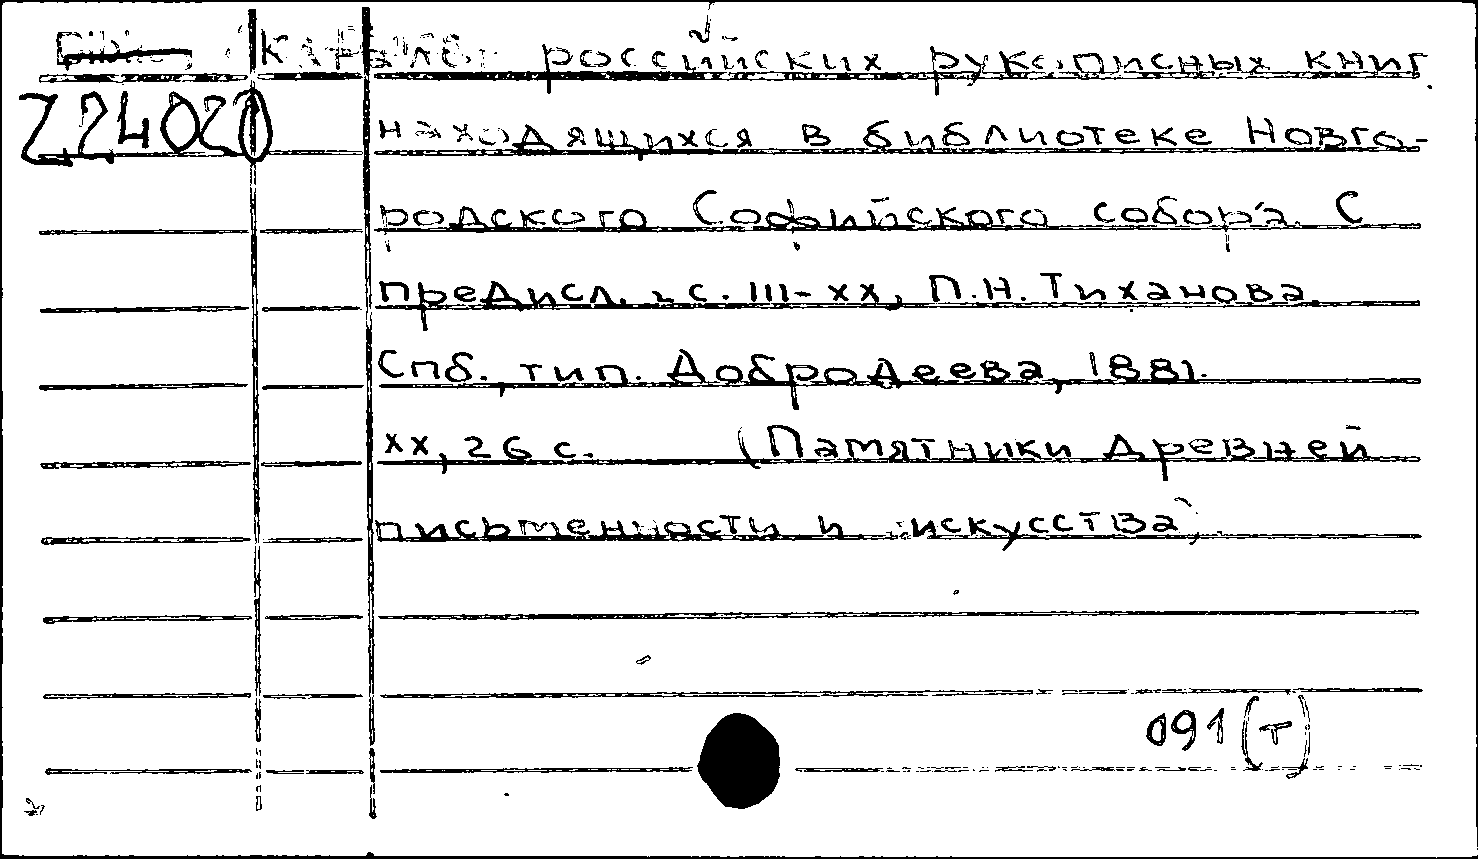 Каталог российских рукописных книг
224020 находящихся в библиотеке Новго-
родского Софийского собора. С
предисл., с. III-XX, П.Н. Тиханова.
Спб., тип. Добродеева, 1881.
XX, 26 с. (Памятники древней
письменности и искусства)
091(т)